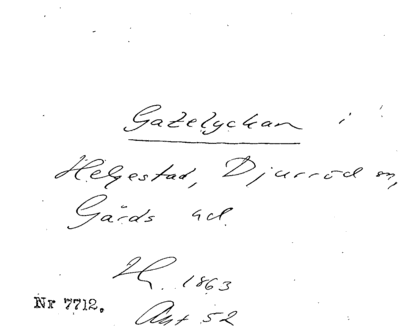 Gatelyckan i
Helgestad, Djurröd sn,
Gärds hd.
H. 1863
Nr 7712.
Akt 52